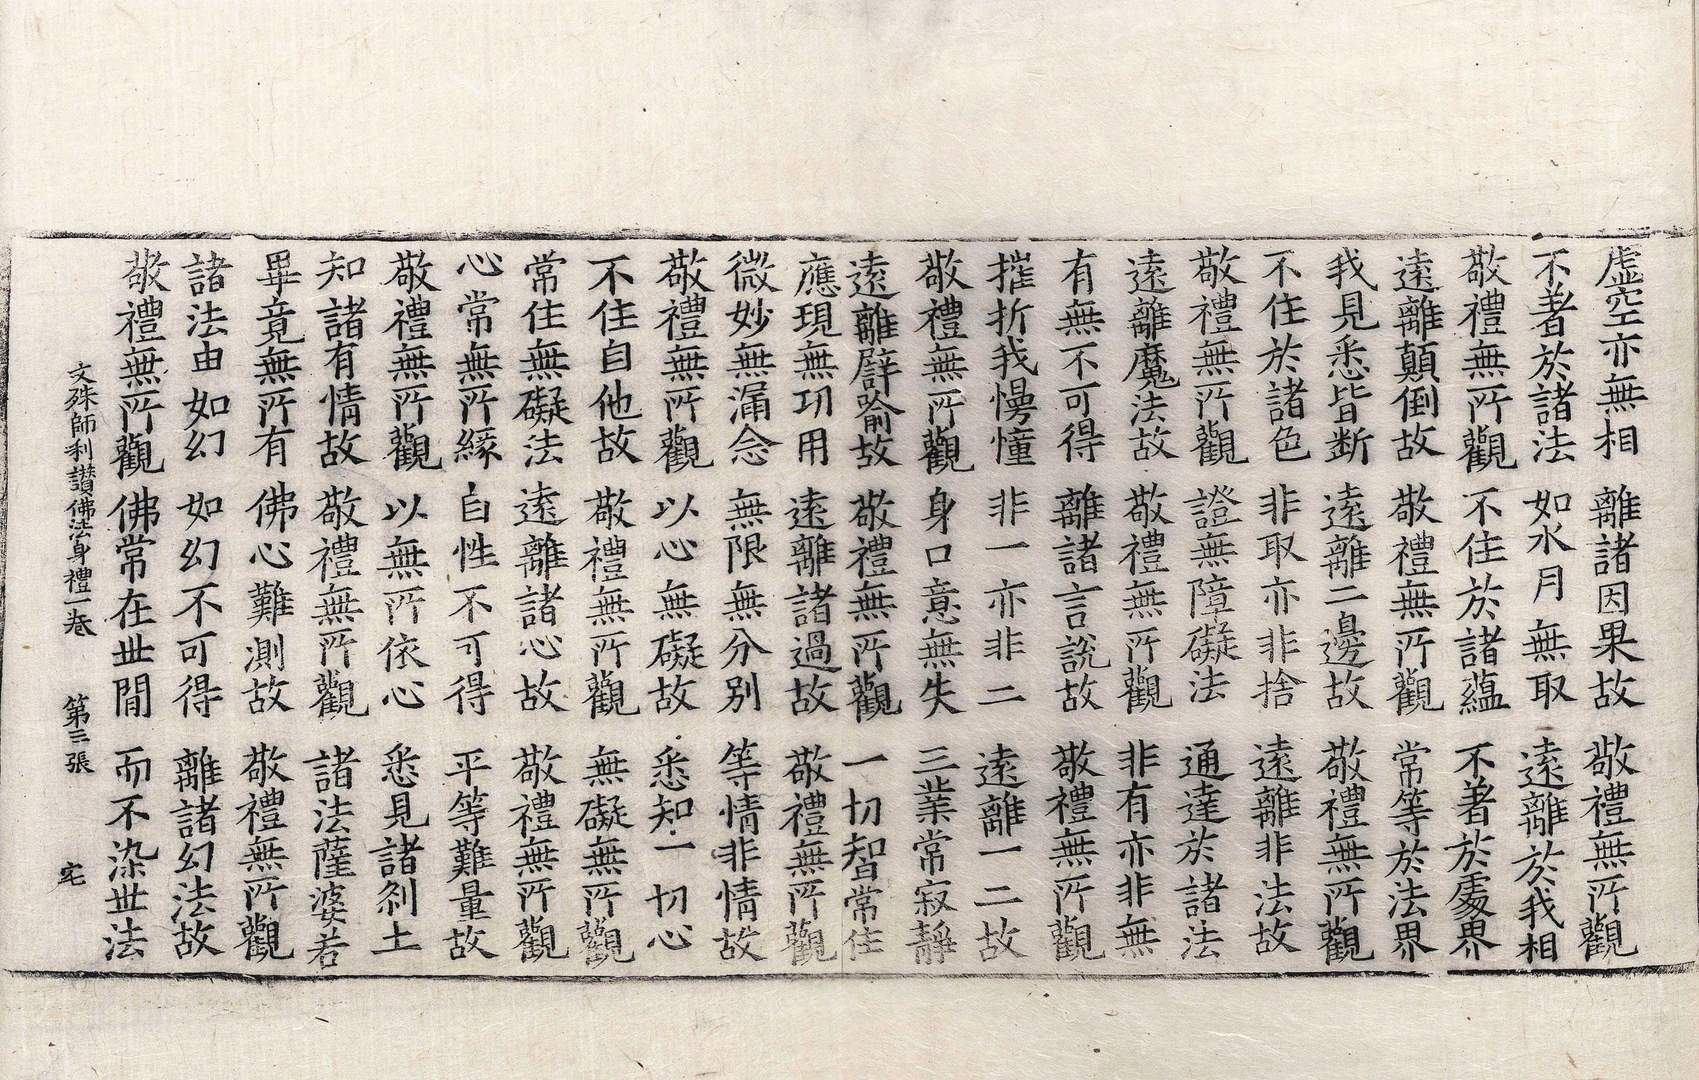 虛空亦無相　離諸因果故　敬禮無所觀
不著於諸法　如水月無取　遠離於我相
敬禮無所觀　不住於諸蘊　不著於處界
遠離顛倒故　敬禮無所觀　常等於法界
我見悉皆斷　遠離二邊故　敬禮無所觀
不住於諸色　非取亦非捨　遠離非法故
敬禮無所觀　證無障礙法　通達於諸法
遠離魔法故　敬禮無所觀　非有亦非無
有無不可得　離諸言說故　敬禮無所觀
摧折我慢憧　非一亦非二　遠離一二故
敬禮無所觀　身口意無失　三業常寂靜
遠離譬喻故　敬禮無所觀　一切智常住
應現無功用　遠離諸過故　敬禮無所觀
微妙無漏念　無限無分別　等情非情故
敬禮無所觀　以心無礙故　悉知一切心
不住自他故　敬禮無所觀　無礙無所觀
常住無礙法　遠離諸心故　敬禮無所觀
心常無所緣　自性不可得　平等難量故
敬禮無所觀　以無所依心　悉見諸剎土
知諸有情故　敬禮無所觀　諸法薩婆若
畢竟無所有　佛心難測故　敬禮無所觀
諸法由如幻　如幻不可得　離諸幻法故
敬禮無所觀　佛常在世間　而不染世法
文殊師利讃佛法身禮一卷　第三張　宅